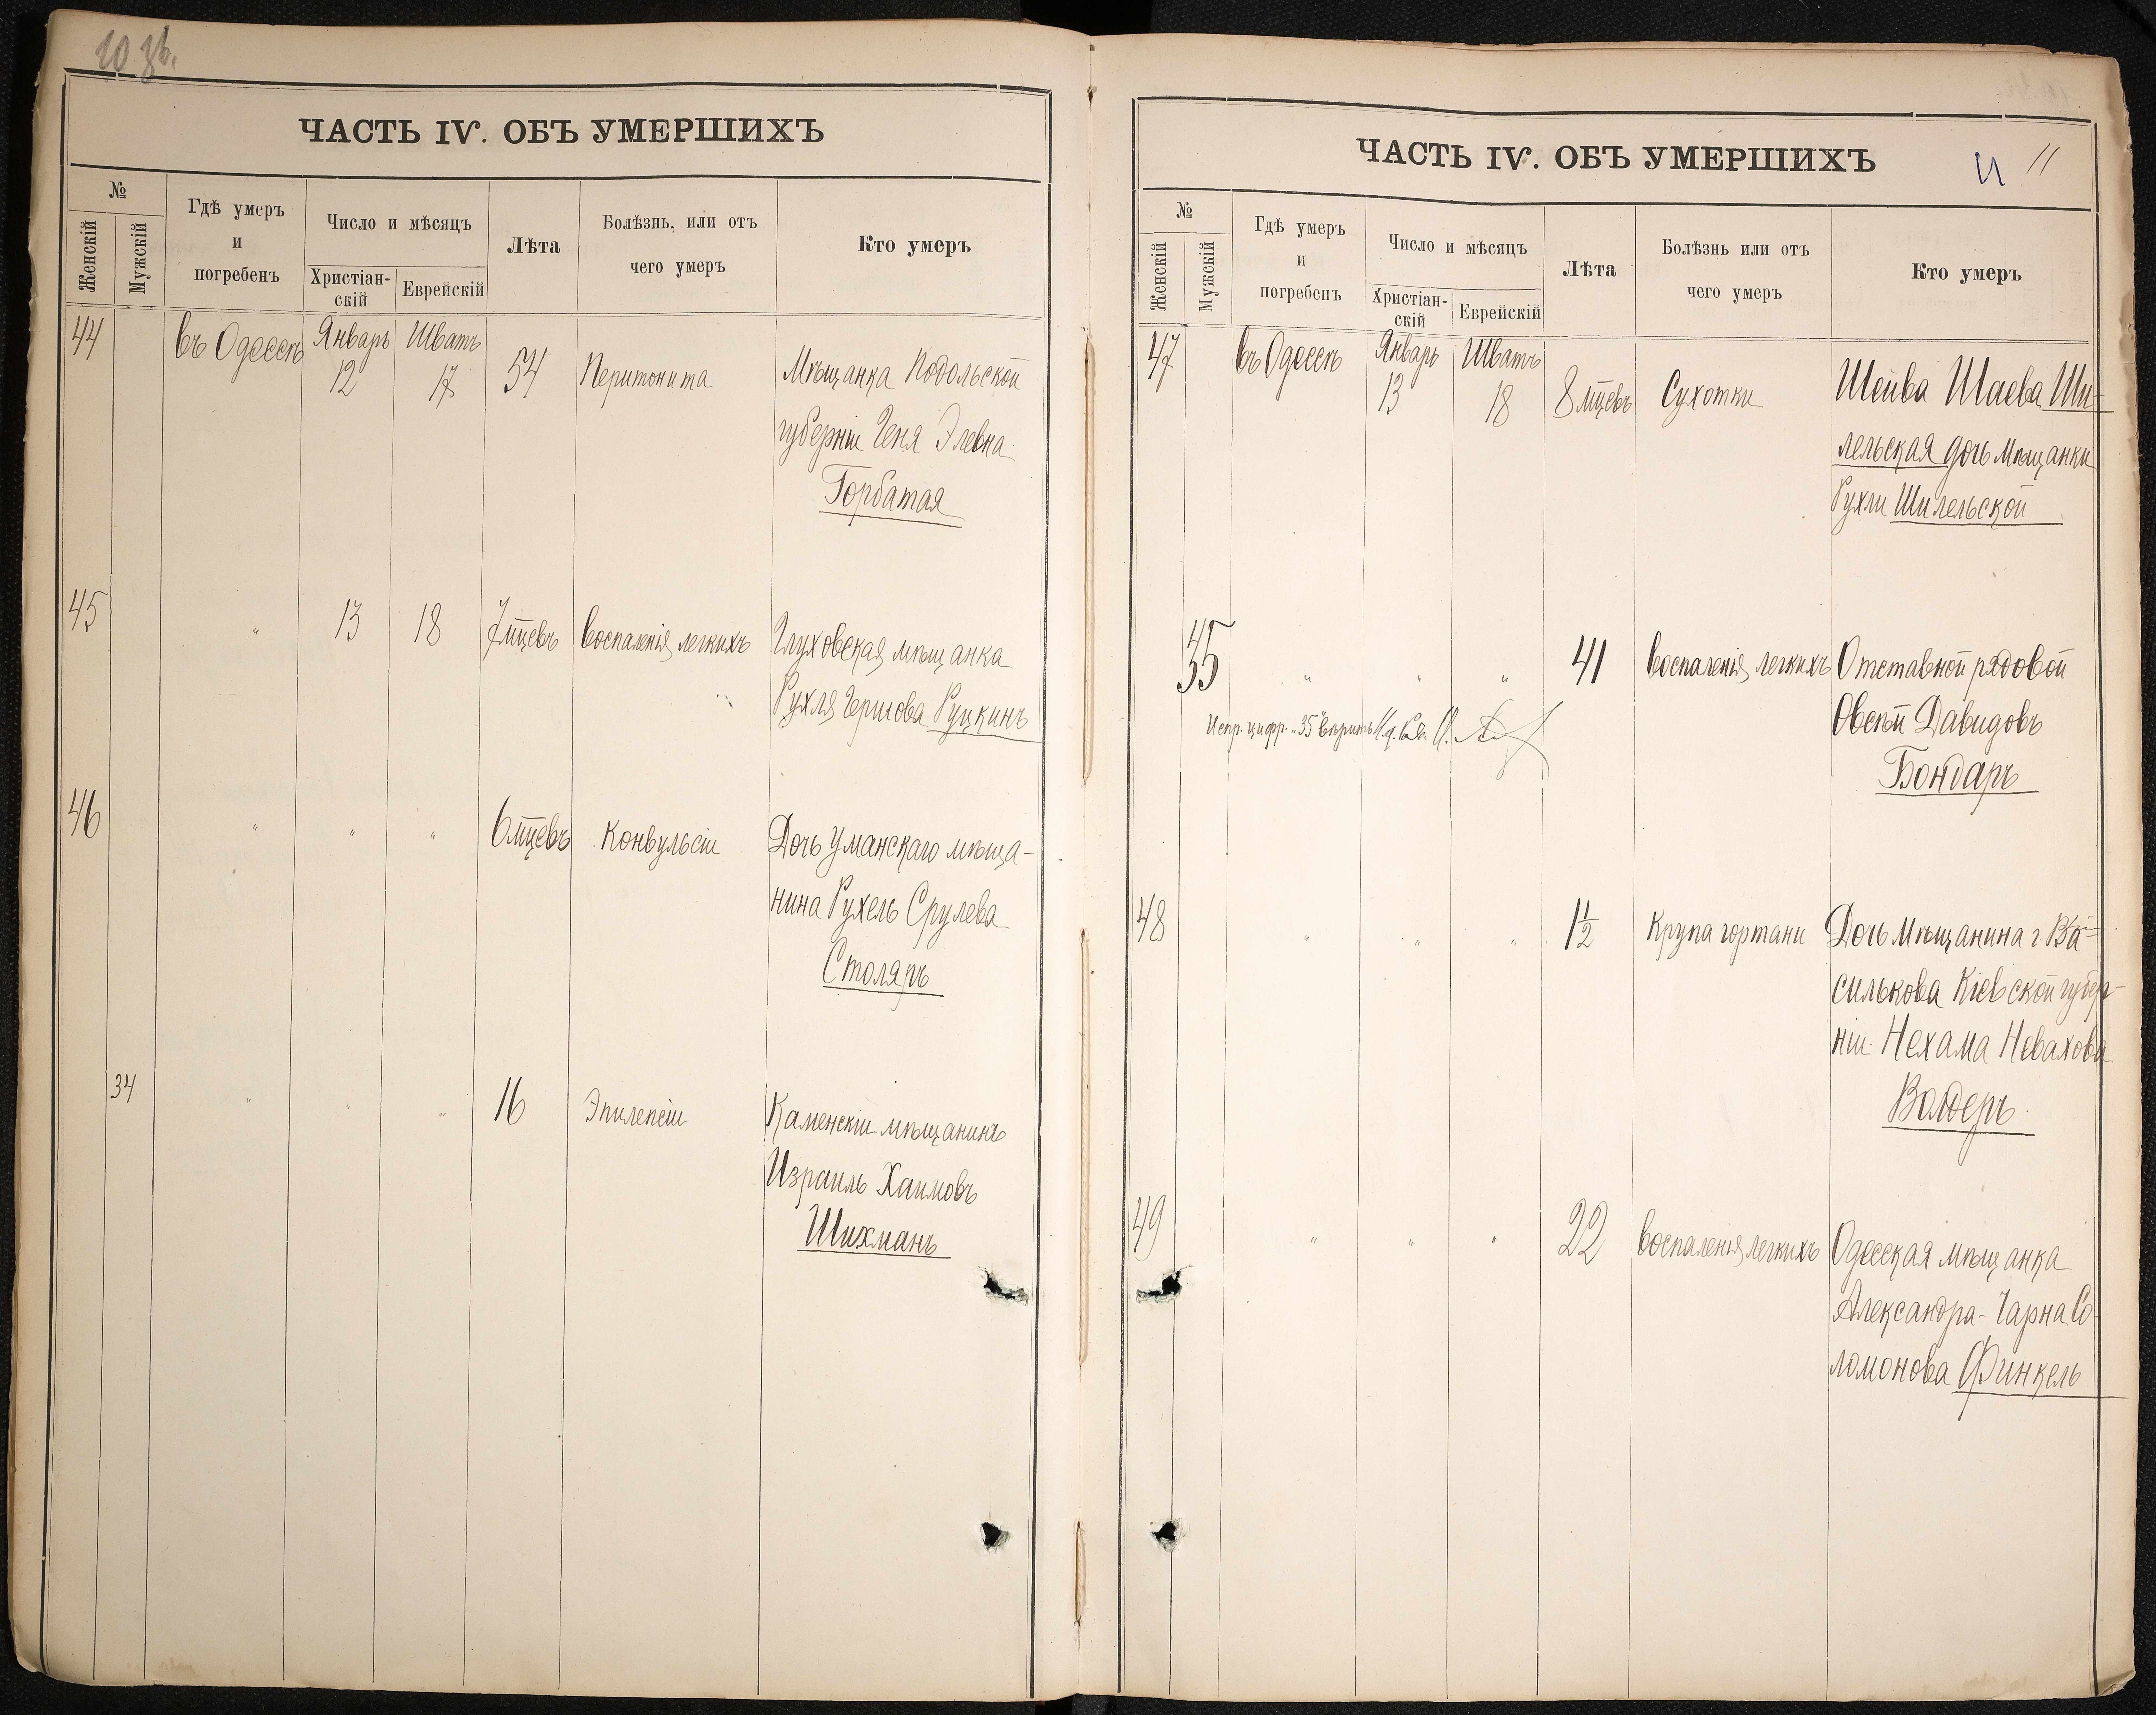 10 зв.
ЧАСТЬ IV. ОБЪ УМЕРШИХЪ
№
Женскій
Мужскій
Гдѣ умеръ
и
погребенъ
Число и мѣсяцъ
Христіан-
скій
Еврейскій
Лѣта
Болѣзнь, или отъ
чего умеръ
Кто умеръ
44 въ Одессѣ Январь 12 Шватъ 17 54 Перитонита Мѣщанка Подольской
губерніи Геня Элевна
Горбатая
45 " 13 18 7 мцевъ Воспаленія легкихъ Глуховская мѣщанка
Рухля Гершова Руцкинъ
46 " " " 6 мцевъ Конвульсіи Дочь Уманскаго мѣща-
нина Рухель Срулева
Столяръ
34 " " " 16 Эпилепсіи Каменскій мѣщанинъ
Израиль Хаимовъ
Шихманъ
ЧАСТЬ IV. ОБЪ УМЕРШИХЪ
11 11
№
Женскій
Мужскій
Гдѣ умеръ
и
погребенъ
Число и мѣсяцъ
Христіан-
скій
Еврейскій
Лѣта
Болѣзнь или отъ
чего умеръ
Кто умеръ
47 въ Одессѣ Январь 13 Шватъ 18 8 мцевъ Сухотки Шейва Шаева Ши-
лельская дочь мѣщанки
Рухли Шилельской
35 " " " 41 Воспаленія легкихъ Отставной рядовой
Овсѣй Давидовъ
Бондаръ
Испр. цифр. "35" вѣрить
48 " " " 1 1/2 Крупа гортани Дочь Мѣщанина г Ва-
силькова Кіевской губер-
ніи Нехама Невахова
Валдеръ
49 " " " 22 Воспаленія легкихъ Одесская мѣщанка
Александра-Чарна Со-
ломонова Финкель